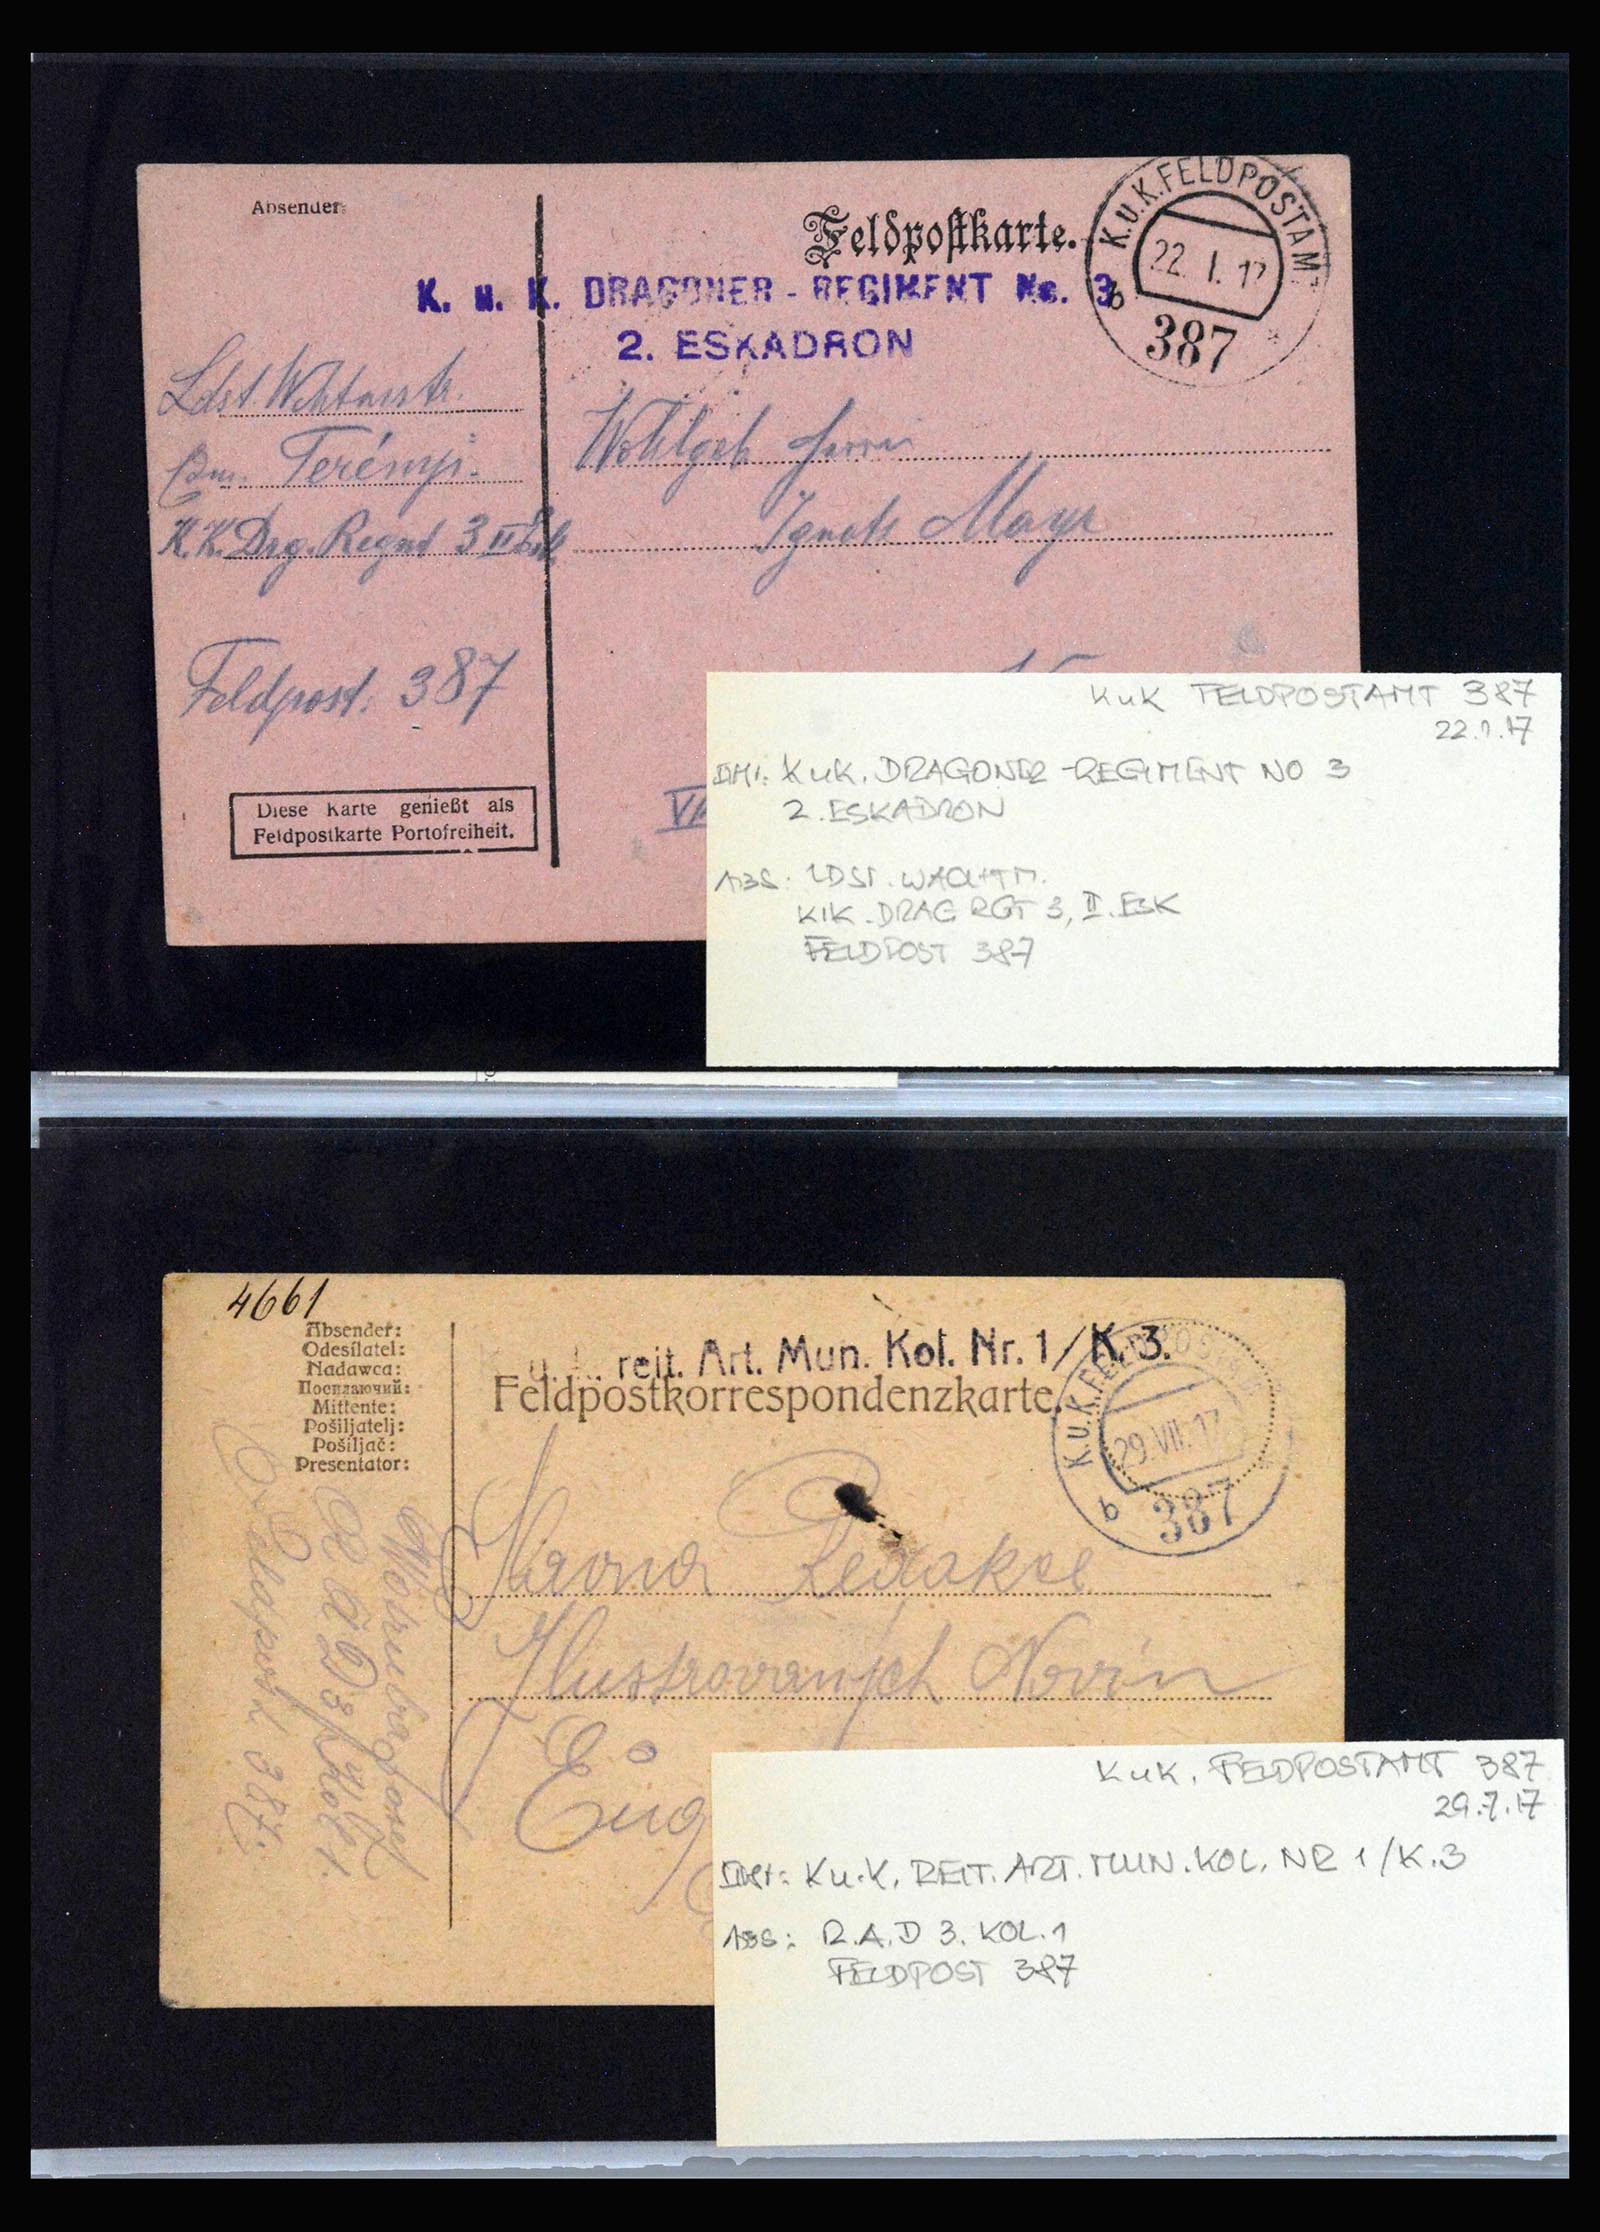 Absender:
Feldpostkarte.
K.U.K.FELDPOSTAMT
22. I. 17
b
387
*
K. u. K. DRAGONER - REGIMENT No. 3
2. ESKADRON
Ldst.
Terényi
K.K. Drg. Regmt 3 II Esk
Feldpost: 387
Wohlgeb Herrn
Ignatz Mayr
Diese Karte genießt als
Feldpostkarte Portofreiheit.
KuK FELDPOSTAMT 387
22.1.17
KuK. DRAGONER-REGIMENT NO 3
2. ESKADRON
ABS: LDST. WACHTM.
K.K. DRAG RGT 3, II. ESK
FELDPOST 387
4661
Absender:
Odesílatel:
Nadawca:
Посилаючий:
Mittente:
Pošiljatelj:
Pošiljač:
Presentator:
u. k. reit. Art. Mun. Kol. Nr. 1/K. 3.
Feldpostkorrespondenzkarte.
K.U.K.FELDPOSTAMT
29.VII.17
b
387
Slavná Redakce
Illustrovaných Novin
Feldpost 387.
KuK. FELDPOSTAMT 387
29.7.17
K.u.K. REIT. ART. MUN. KOL. NR 1/K.3
ABS: R.A.D 3. KOL. 1
FELDPOST 387